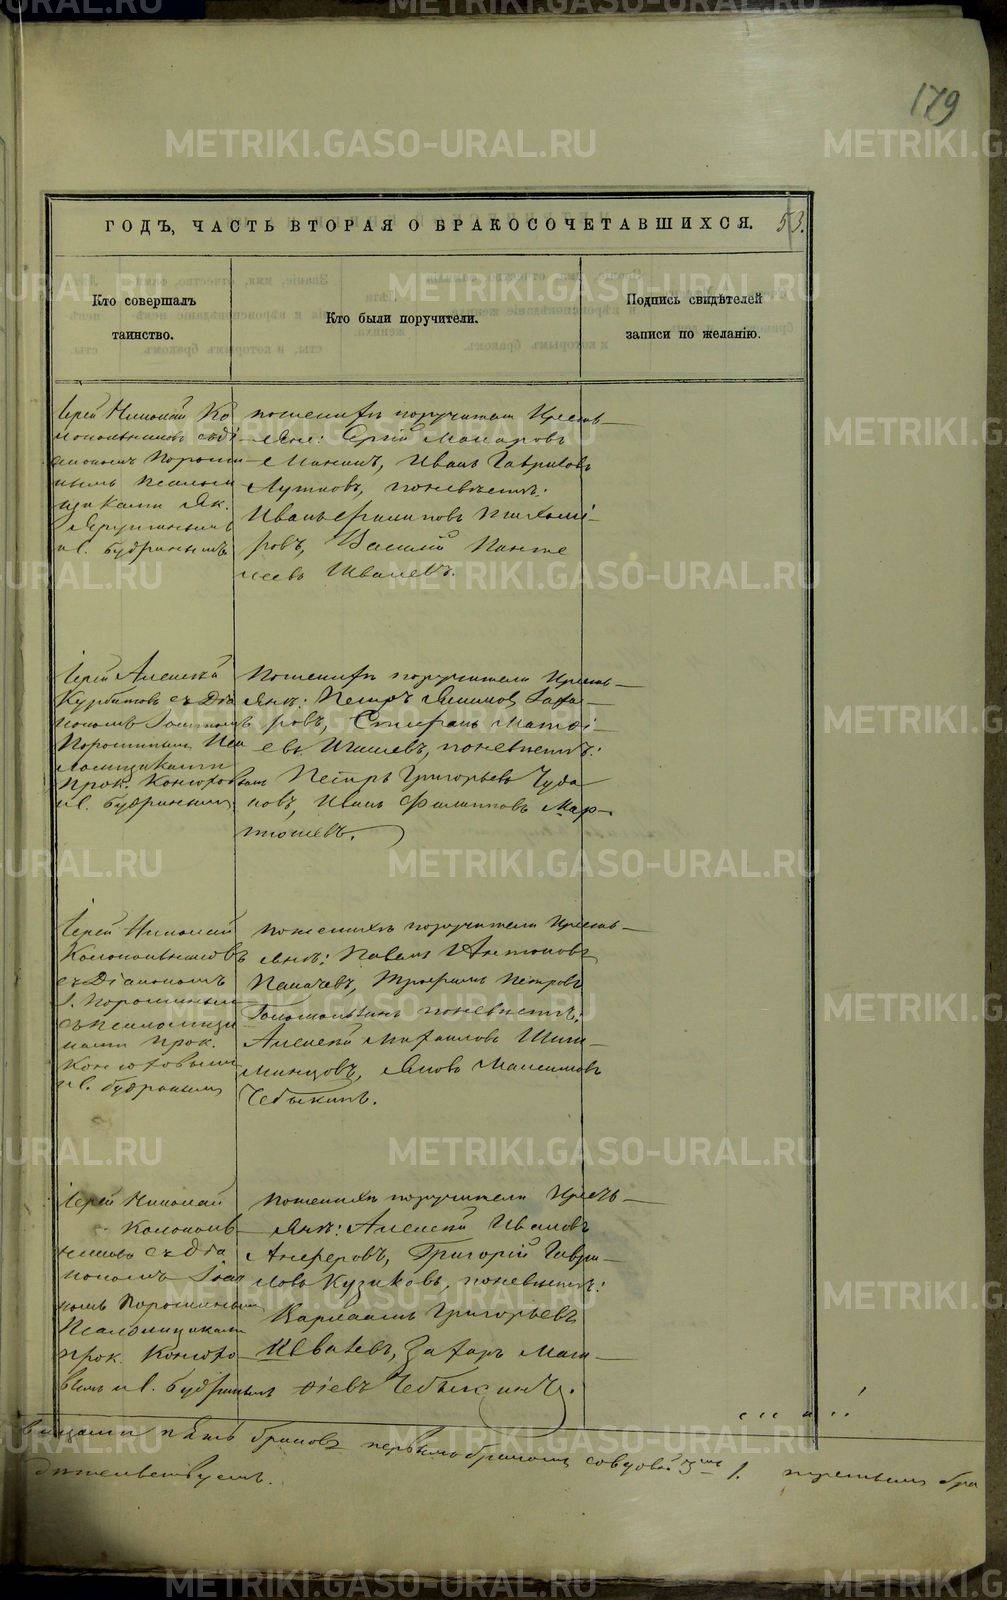 179
ГОДЪ, ЧАСТЬ ВТОРАЯ О БРАКОСОЧЕТАВШИХСЯ. 53.
Кто совершалъ
таинство.
Кто были поручители.
Подпись свидѣтелей
записи по желанію.
Іерей Николай Ко
локольниковъ съ ді
акономъ Порош
нымъ Псалом
щиками Як.
и І. Будринымъ
по женихѣ поручители Кресть-
яне: Сергій Макаровъ
Мининъ, Иванъ Гавриловъ
по невѣстѣ:
Иванъ Филиповъ Тихоми-
ровъ, Василій Панте
леевъ Ивачевъ.
Іерей Алексѣй
Курбатовъ съ Діа
кономъ Іоанномъ
Порошинымъ Пса
ломщиками
Прок. Конюховымъ
и І. Будринымъ
По женихѣ поручители Кресть-
яне: Петръ Якимовъ Заха-
ровъ, Стефанъ Матѳі-
евъ по невѣстѣ:
Петръ Григорьевъ Чуда
ковъ, Иванъ Филипповъ Мар-
тюшевъ.
Іерей Николай
Колокольниковъ
съ Діакономъ
І. Порошинымъ
съ псаломщи
ками Прок.
Конюховымъ
и І. Будринымъ
По женихѣ поручители Кресть-
яне: Павелъ Антоновъ
Пахачевъ, Трофимъ Петровъ
по невѣстѣ:
Алексѣй Михаиловъ
Яковъ Максимовъ
Чебыкинъ.
Іерей Николай
Колоколь
никовъ съ Діа
кономъ Іоан
номъ Порошинымъ
Псаломщиками
Прок. Конюхо
вымъ и І. Будринымъ
По женихѣ поручители Кресть-
яне: Алексѣй Ивановъ
Анферовъ, Григорій Гаври
ловъ Кузиковъ, по невѣстѣ:
Варлаамъ Григорьевъ
Ивачевъ, Захаръ Мат-
ѳіевъ Чебыкинъ.
пять браковъ первымъ бракомъ со вдовой 3 третьимъ бра